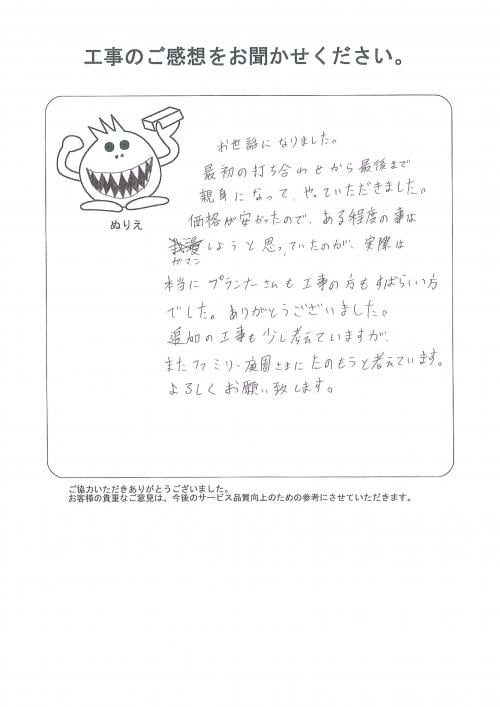 工事のご感想をお聞かせください。
ぬりえ
お世話になりました。
最初の打ち合わせから最後まで
親身になって、やっていただきました。
価格が安かったので、ある程度の事は
ガマンしようと思っていたのが、実際は
本当にプランナーさんも工事の方もすばらいい方
でした。ありがとうございました。
追加の工事も少し考えていますが、
またファミリー庭園さまにたのもうと考えています。
よろしくお願い致します。
ご協力いただきありがとうございました。
お客様の貴重なご意見は、今後のサービス品質向上のための参考にさせていただきます。